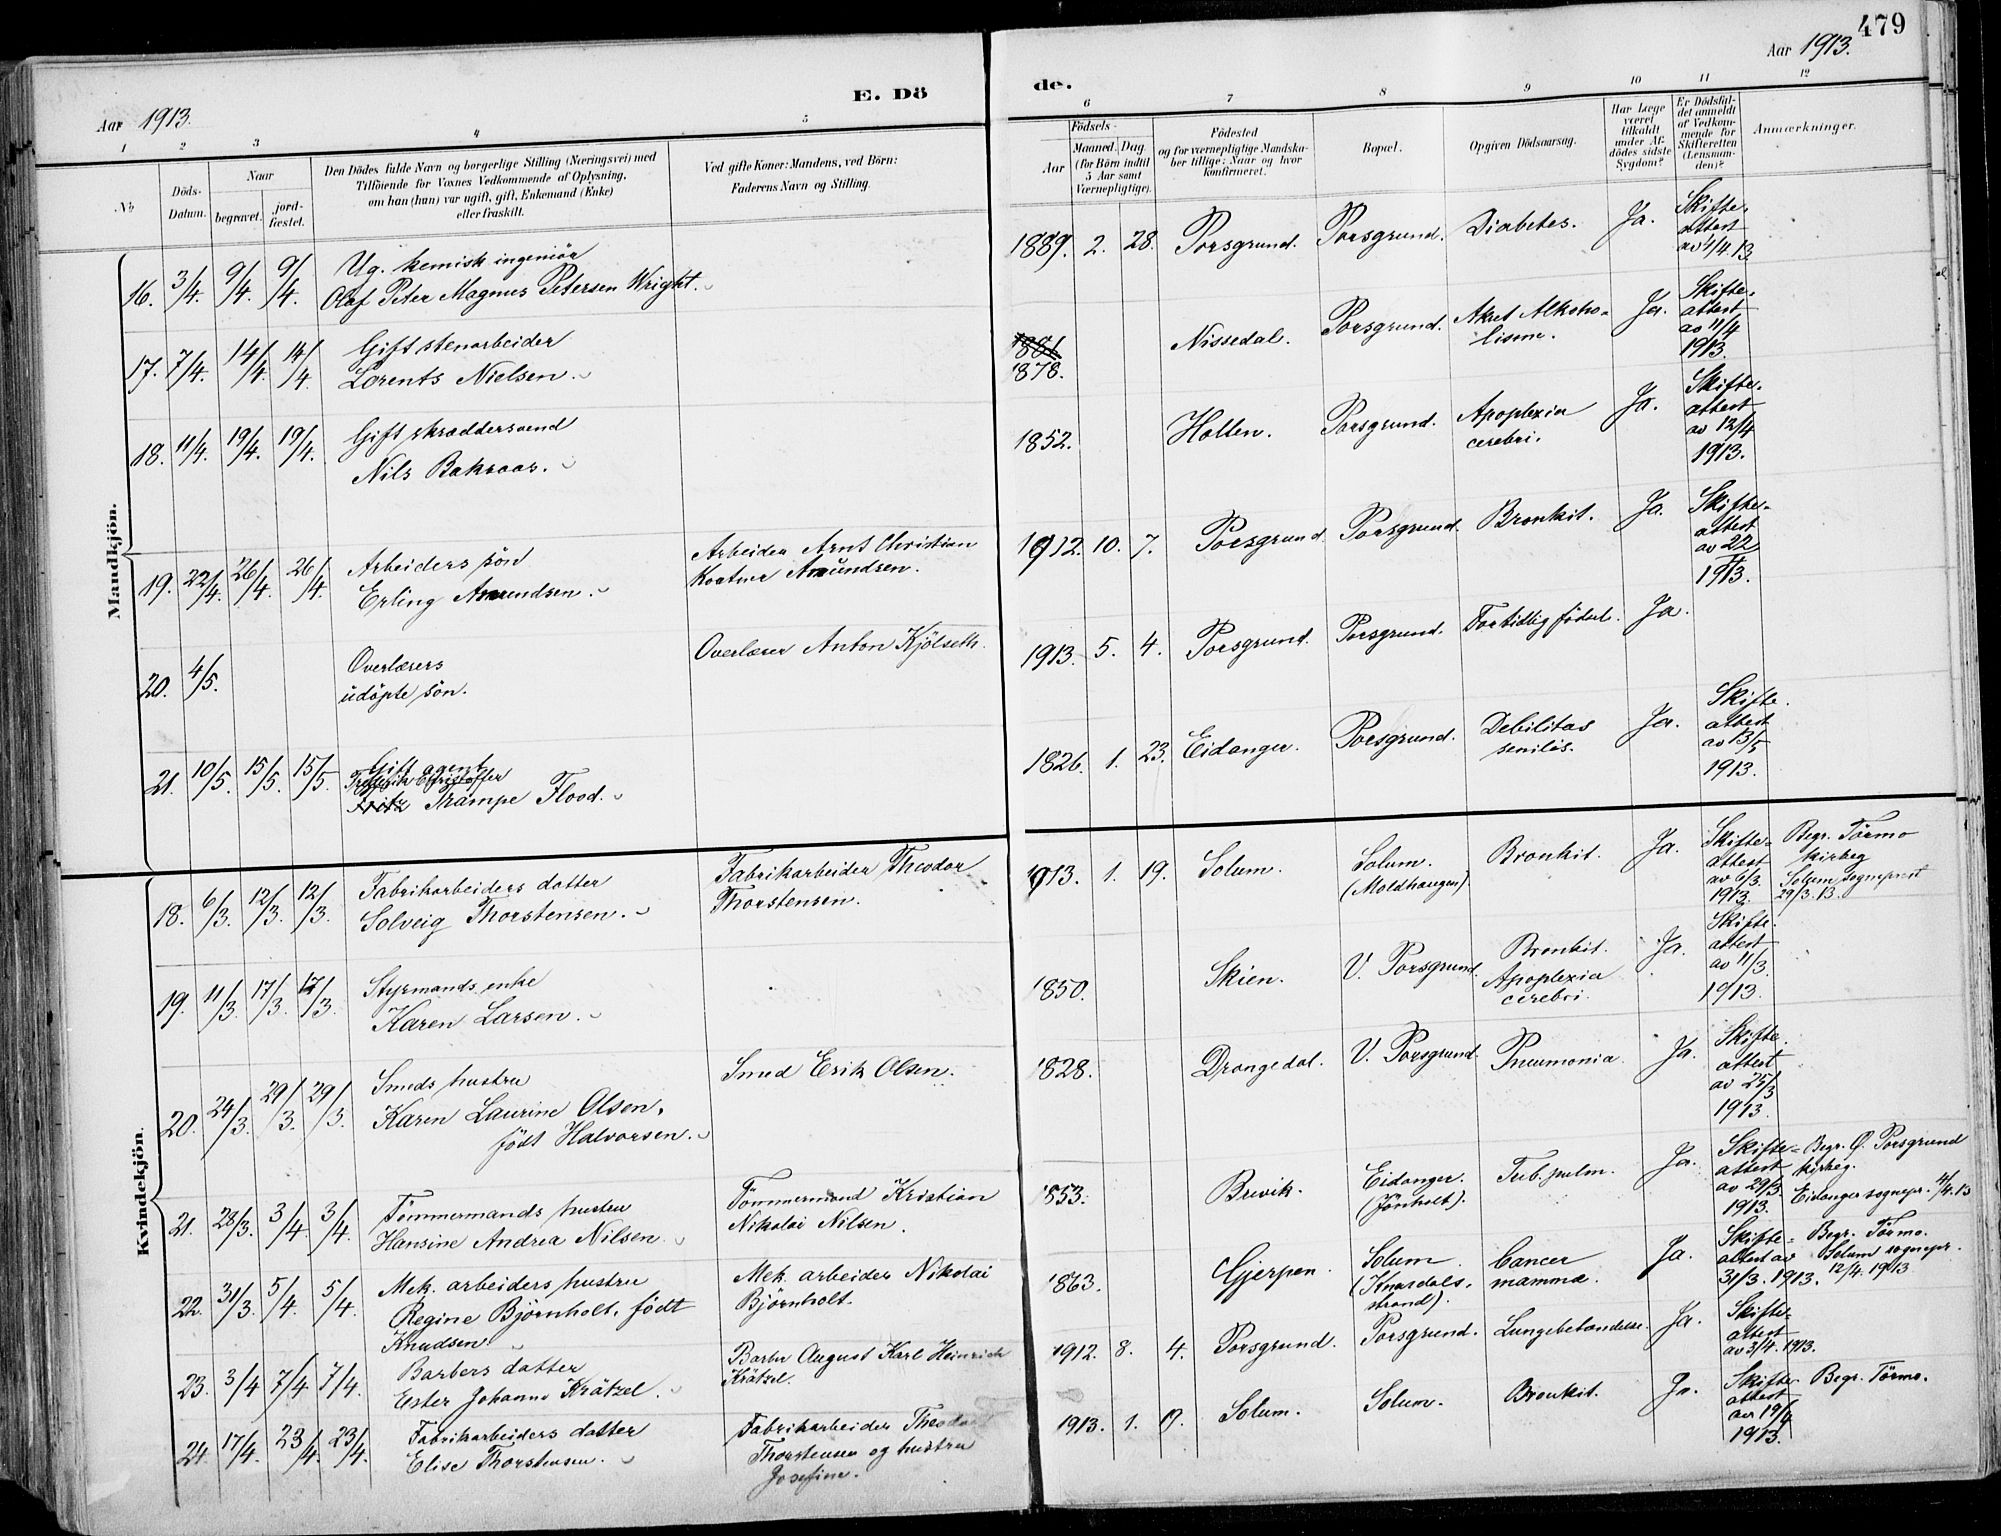 479
Aar 1913.
E. Dö
de.
Aar 1913.
1 2 3 4 5 6 7 8 9 10 11 12
No
Döds-Datum.
Naar
begravet.
jord-fæstet.
Den Dödes fulde Navn og borgerlige Stilling (Næringsvei) med
Tilföiende for Voxnes Vedkommende af Oplysning,
om han (hun) var ugift, gift, Enkemand (Enke)
eller fraskilt.
Ved gifte Koner: Mandens, ved Börn:
Faderens Navn og Stilling.
Födsels-
Aar
Maaned. Dag
(for Börn indtil
5 Aar samt
Værnepligtige).
Födested
og for værnepligtige Mandska-
ber tillige: Naar og hvor
konfirmeret.
Bopæl.
Opgiven Dödsaarsag.
Har Læge
været
tilkaldt
under Af-
dödes sidste
Sygdom?
Er Dödsfal-
det anmeldt
af Vedkom-
mende for
Skifteretten
(Lensman-
den)?
Anmærkninger.
Mandkjön.
16. 3/4. 9/4. 9/4. Ug. kemisk ingeniör
Olaf Peter Magnus Petersen Wright.
1889. 2. 28. Porsgrund. Porsgrund. Diabetes. Ja. Skifte-
attest
av 4/4. 13
17. 7/4. 14/4. 14/4. Gift stenarbeider
Lorents Nielsen.
1881
1878. Nissedal. Porsgrund. Akut Alkoho-
lisme. Ja. Skifte-
attest
av 11/4
1913.
18. 11/4. 19/4. 19/4. Gift skræddersvend
Nils Bakraas.
1852. Hollen. Porsgrund. Apoplexia
cerebri. Ja. Skifte-
attest
av 12/4
1913.
19. 22/4. 26/4. 26/4. Arbeiders sön
Erling Amundsen.
Arbeider Arnt Christian
Amundsen.
1912. 10. 7. Porsgrund Porsgrund. Bronkit. Ja. Skifte-
attest
av 22/4
1913.
20. 4/5. Overlærers
udöpte sön.
Overlærer Anton Kjölseth.
1913. 5. 4. Porsgrund. Porsgrund. For tidlig födsel. Ja.
21. 10/5. 15/5. 15/5. Gift agent
Fredrik Christoffer
Fritz Trampe Flood.
1826. 1. 23. Eidanger. Porsgrund. Debilitas
senilis. Ja. Skifte-
attest
av 13/5
1913.
Kvindekjön.
18. 6/3. 12/3. 12/3. Fabrikarbeiders datter
Solveig Thorstensen.
Fabrikarbeider Theodor
Thorstensen.
1913. 1. 19. Solum. Solum.
(Moldhaugen). Bronkit. Ja. Skifte-
attest
av 6/3.
1913. Begr. Törmo
kirkeg
Solum sogneprest
29/3. 13.
19. 11/3. 17/3. 17/3. Styrmands enke
Karen Larsen.
1850. Skien. V. Porsgrund. Bronkit.
Apoplexia
cerebri. Ja. Skifte-
attest
av 11/3.
1913.
20. 24/3. 29/3. 29/3. Smeds hustru
Karen Laurine Olsen,
født Halvorsen.
Smed Erik Olsen.
1828. Drangedal. V. Porsgrund. Pneumonia. Ja. Skifte-
attest
av 25/3
1913.
21. 28/3. 3/4. 3/4. Tömmermands hustru
Hansine Andrea Nilsen.
Tömmermand Kristian
Nikolai Nilsen.
1853. Brevik. Eidanger.
(Jönholt). Tub. pulm. Ja. Skifte-
attest
av 29/3.
1913. Begr. Ø. Porsgrund
kirkeg.
Eidanger sognepr. 4/4. 13
22. 31/3. 5/4. 5/4. Mek. arbeiders hustru
Regine Björnholt, födt
Knudsen.
Mek. arbeider Nikolai
Björnholt.
1863. Gjerpen. Solum
(Knardals-
strand). Cancer
mammæ. Ja. Skifte-
attest av
31/3. 1913. Begr. Törmo.
Solum sognepr.
12/4. 1913
23. 3/4 7/4 7/4. Barbers datter
Ester Johanne Krätzel.
Barber August Karl Heinrich
Krätzel.
1912. 8. 4. Porsgrund. Porsgrund. Lungebetændelse. Ja. Skifte-
attest
av 3/4. 1913.
24. 17/4. 23/4. 23/4. Fabrikarbeiders datter
Elise Thorstensen.
Fabrikarbeider Theodor
Thorstensen og hustru
Josefine.
1913. 1. Solum. Solum. Bronkit. Ja. Skifte-
attest
av 19/4
1913. Begr. Törmo.